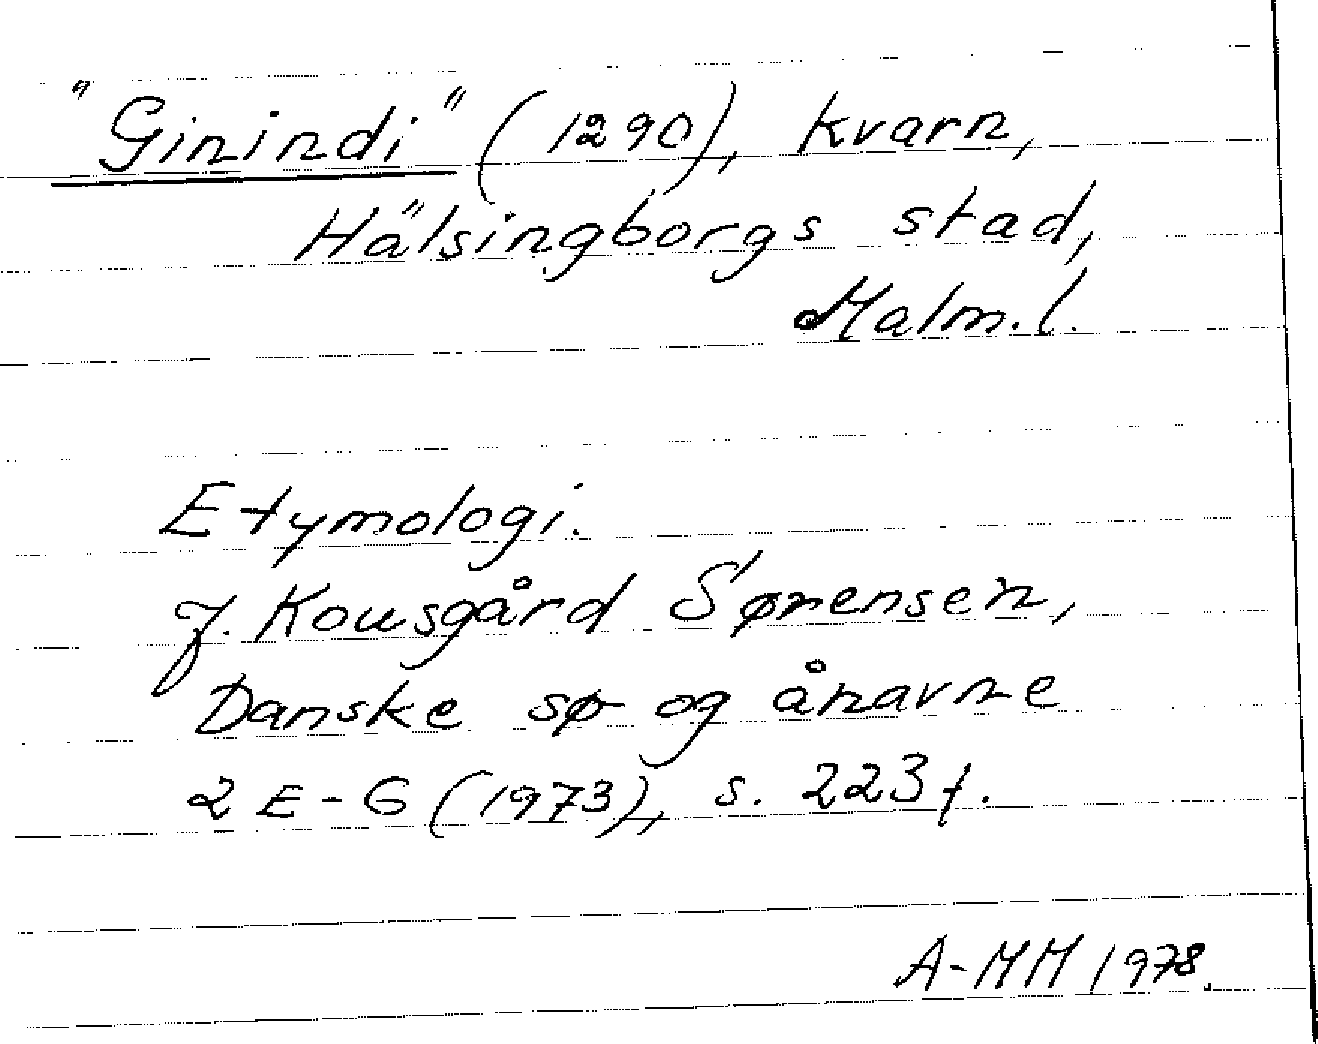 "Ginindi" (1290), kvarn,
Hälsingborgs stad,
Malm. l.
Etymologi.
J. Kousgård Sørensen,
Danske sø- og ånavne
2 E-G (1973), s. 223 f.
A-MM 1978.